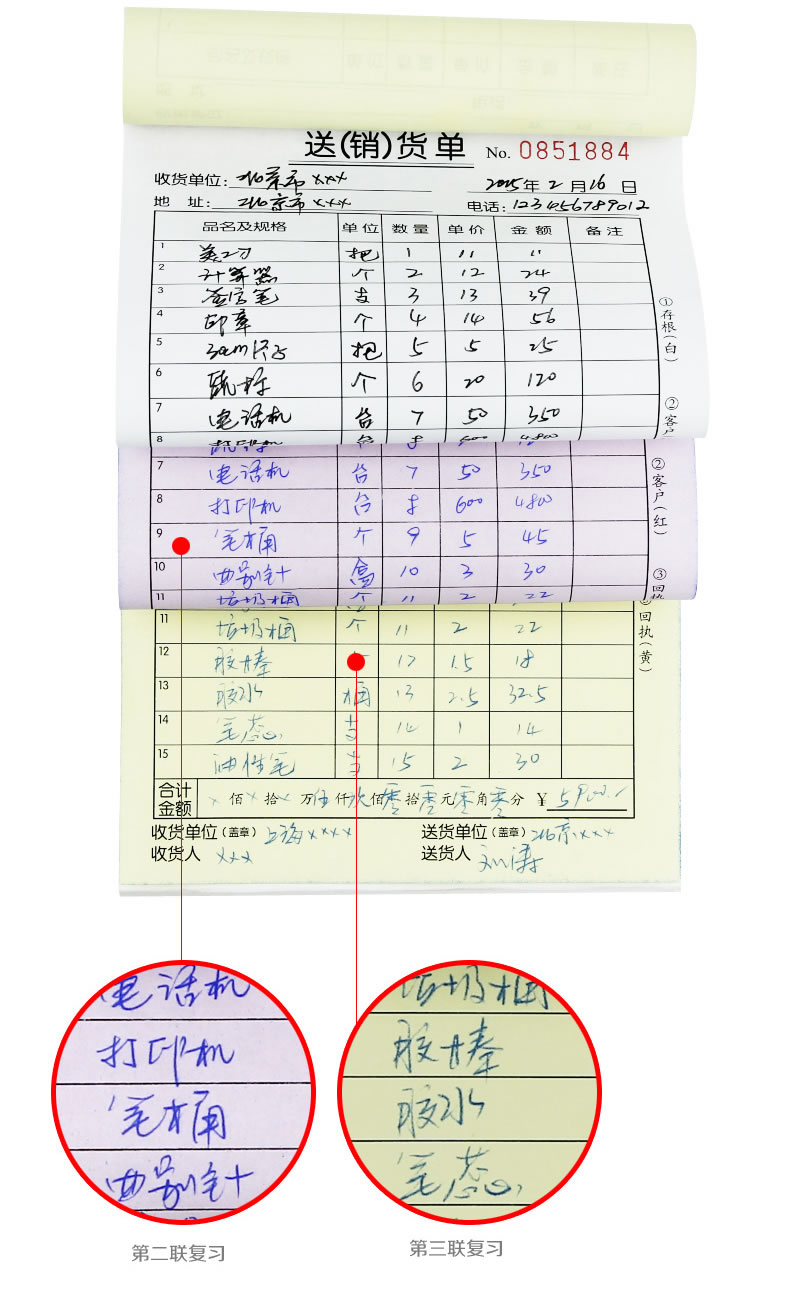 送(销)货单 No. 0851884
收货单位: 北京市xxx 2015年2月16日
地址: 北京市xxx 电话: 123456789012
品名及规格 单位 数量 单价 金额 备注
1 美工刀 把 1 11 11
2 计算器 个 2 12 24
3 签字笔 支 3 13 39
4 印章 个 4 14 56
5 30cm尺子 把 5 5 25
6 个 6 20 120
7 电话机 台 7 50 350
8 打印机 台 8 600 4800
①存根(白)
②客户
7 电话机 台 7 50 350
8 打印机 台 8 600 4800
9 笔桶 个 9 5 45
10 曲别针 盒 10 3 30
11 垃圾桶 个 11 2 22
②客户(红)
③回执
11 垃圾桶 个 11 2 22
12 胶棒 12 1.5 18
13 胶水 桶 13 2.5 32.5
14 笔芯 支 14 1 14
15 油性笔 支 15 2 30
③回执(黄)
合计金额 x佰x拾x万伍仟玖佰零拾零元零角零分 ¥ 5900.
收货单位(盖章) 上海xxxx 送货单位(盖章) 北京xxx
收货人 xxx 送货人 刘涛
电话机
打印机
笔桶
曲别针
垃圾桶
胶棒
胶水
笔芯
第二联复习
第三联复习